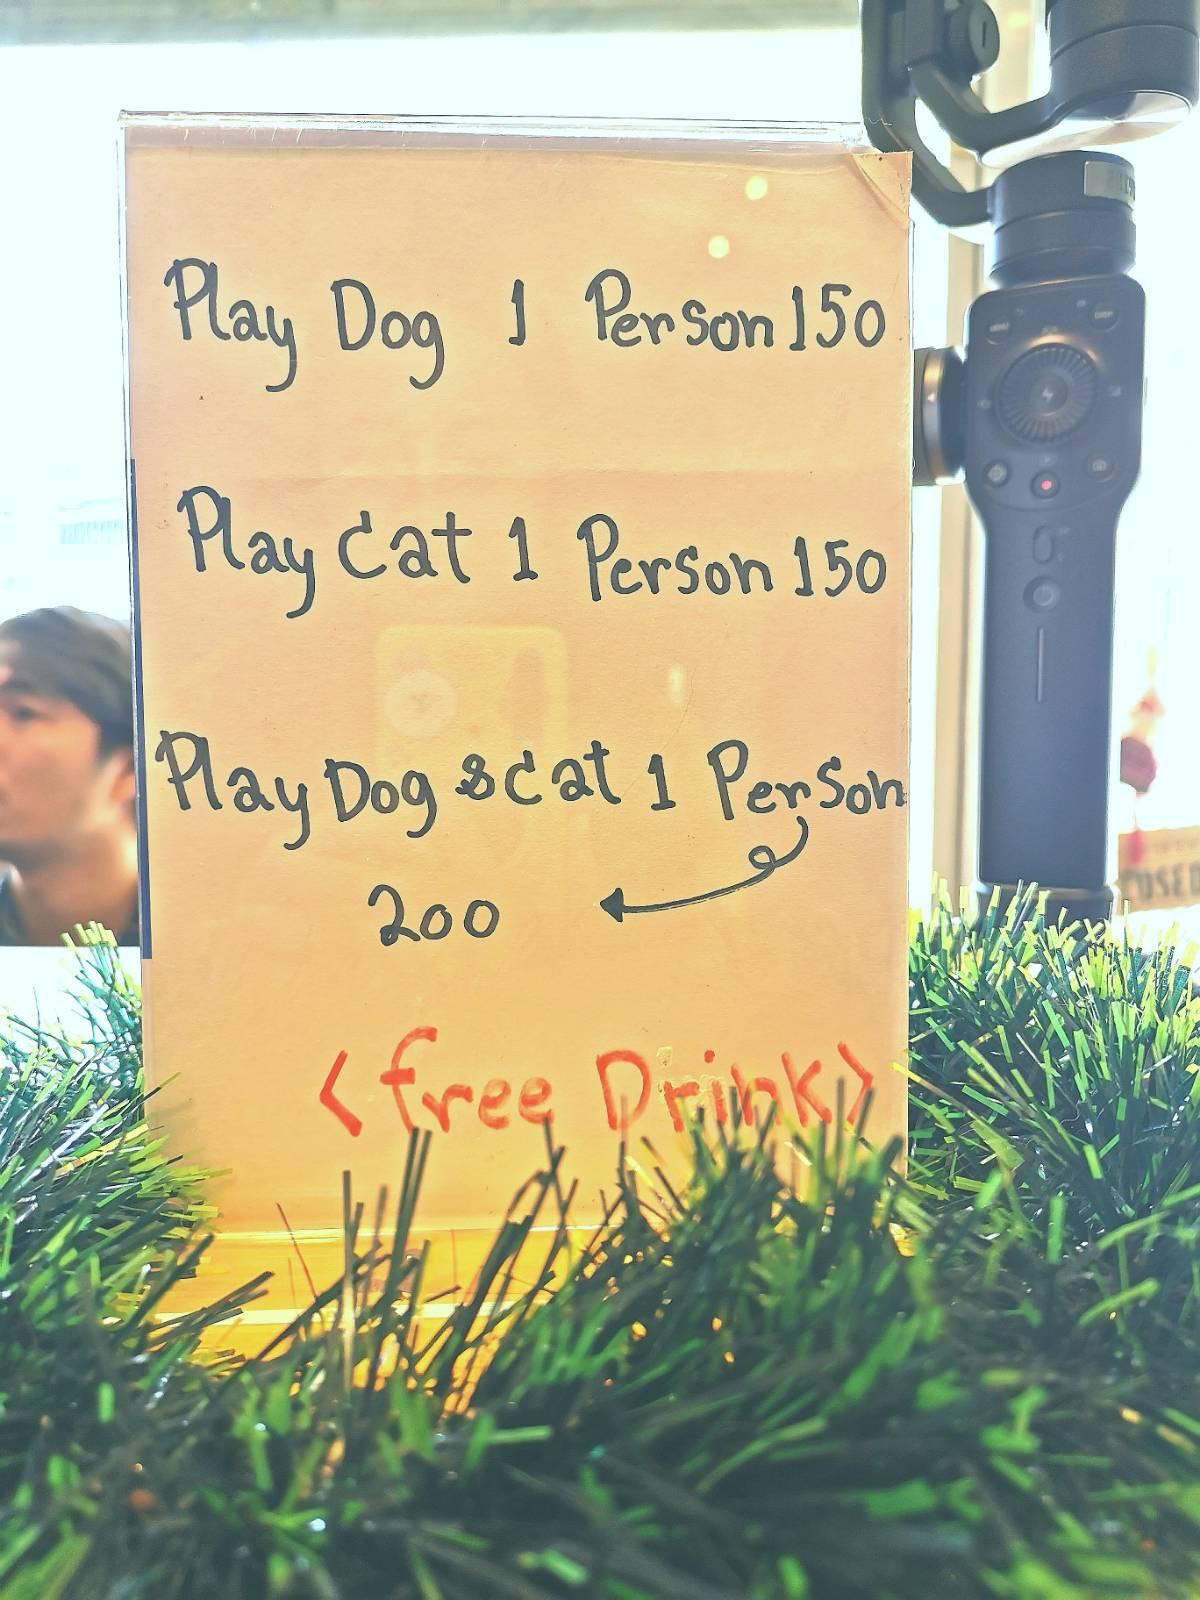 Play Dog 1 Person 150
Play Cat 1 Person 150
Play Dog & Cat 1 Person
200
<free Drink>